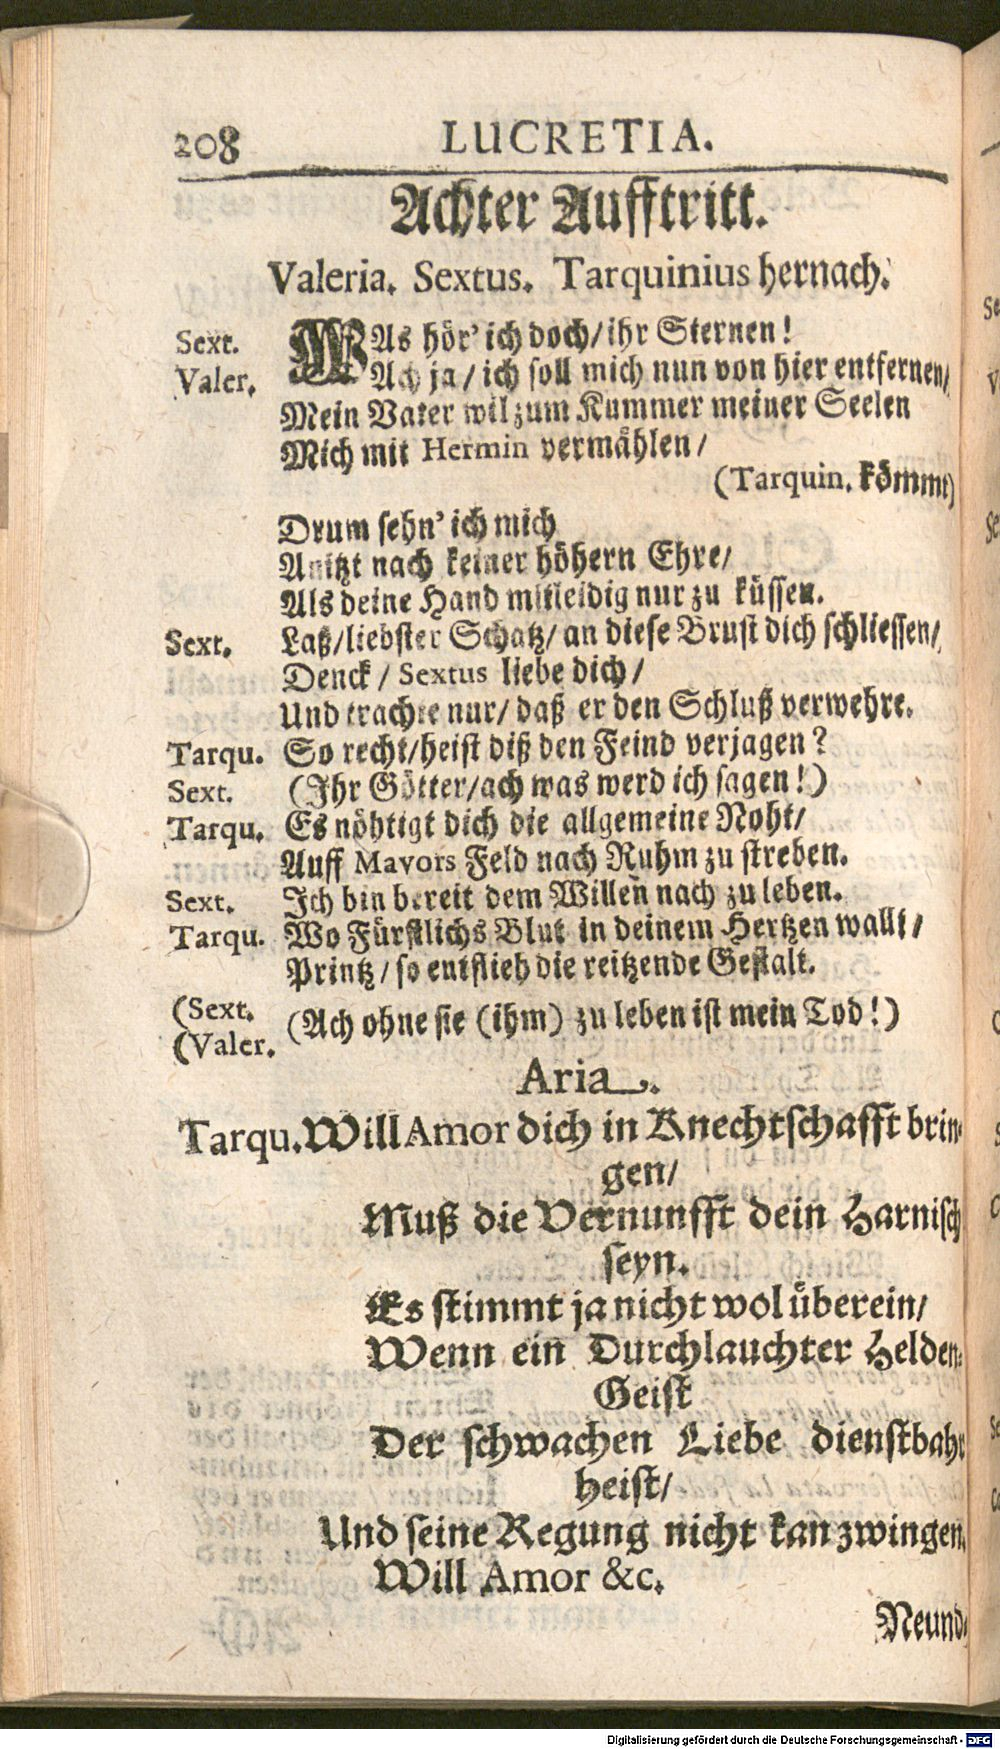 208 LUCRETIA.
Achter Aufftritt.
Valeria. Sextus. Tarquinius hernach.
Sext. WAs hör' ich doch/ihr Sternen!
Valer. Ach ja/ ich soll mich nun von hier entfernen/
Mein Vater wil zum Kummer meiner Seelen
Mich mit Hermin vermählen/
(Tarquin. kömmt)
Drum sehn' ich mich
Anitzt nach keiner höhern Ehre/
Als deine Hand mitleidig nur zu küssen.
Sext. Laß/liebster Schatz/ an diese Brust dich schliessen/
Denck/ Sextus liebe dich/
Und trachte nur/ daß er den Schluß verwehre.
Tarqu. So recht/heist diß den Feind verjagen?
Sext. (Ihr Götter/ach was werd ich sagen!)
Tarqu. Es nöhtigt dich die allgemeine Noht/
Auff Mavors Feld nach Ruhm zu streben.
Sext. Ich bin bereit dem Willen nach zu leben.
Tarqu. Wo Fürstlichs Blut in deinem Hertzen wallt/
Printz/ so entflieh die reitzende Gestalt.
(Sext.
(Valer. (Ach ohne sie (ihm) zu leben ist mein Tod!)
Aria.
Tarqu. Will Amor dich in Knechtschafft brin-
gen/
Muß die Vernunfft dein Harnisch
seyn.
Es stimmt ja nicht wol überein/
Wenn ein Durchlauchter Helden-
Geist
Der schwachen Liebe dienstbahr
heist/
Und seine Regung nicht kan zwingen.
Will Amor &c.
Neund-
Digitalisierung gefördert durch die Deutsche Forschungsgemeinschaft - DFG